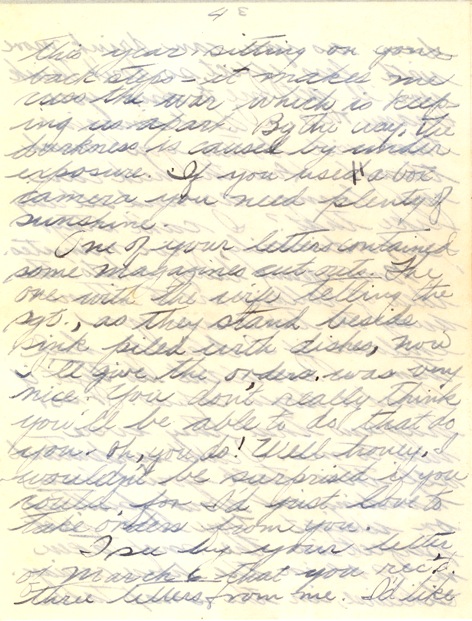 4 3
this year sitting on your
back steps - it makes me
cuss the war which is keep-
ing us apart. By the way, the
darkness is caused by under
exposure. If you used a box
camera you need plenty of
sunshine.
One of your letters contained
some magazines cut outs. The
one with the wife telling the
sgt., as they stand beside
sink piled with dishes, now
I'll give the orders, was very
nice. You don't really think
you'll be able to do that do
you. Oh, you do! Well honey, I
wouldn't be surprised if you
could, for I'd just love to
take orders from you.
I see by your letter
of March 6 that you rec'd.
three letters from me. I'd like